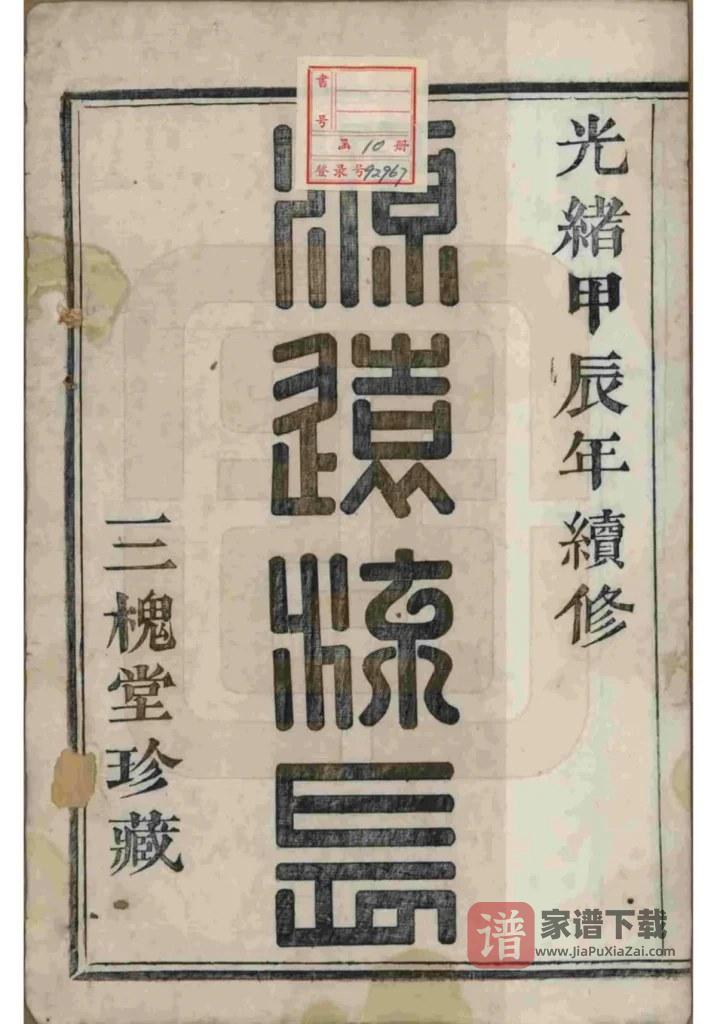 光緒甲辰年續修
源遠流長
三槐堂珍藏
書號
函 10 册
登录号 92967
谱 家谱下载
www.JiaPuXiaZai.com